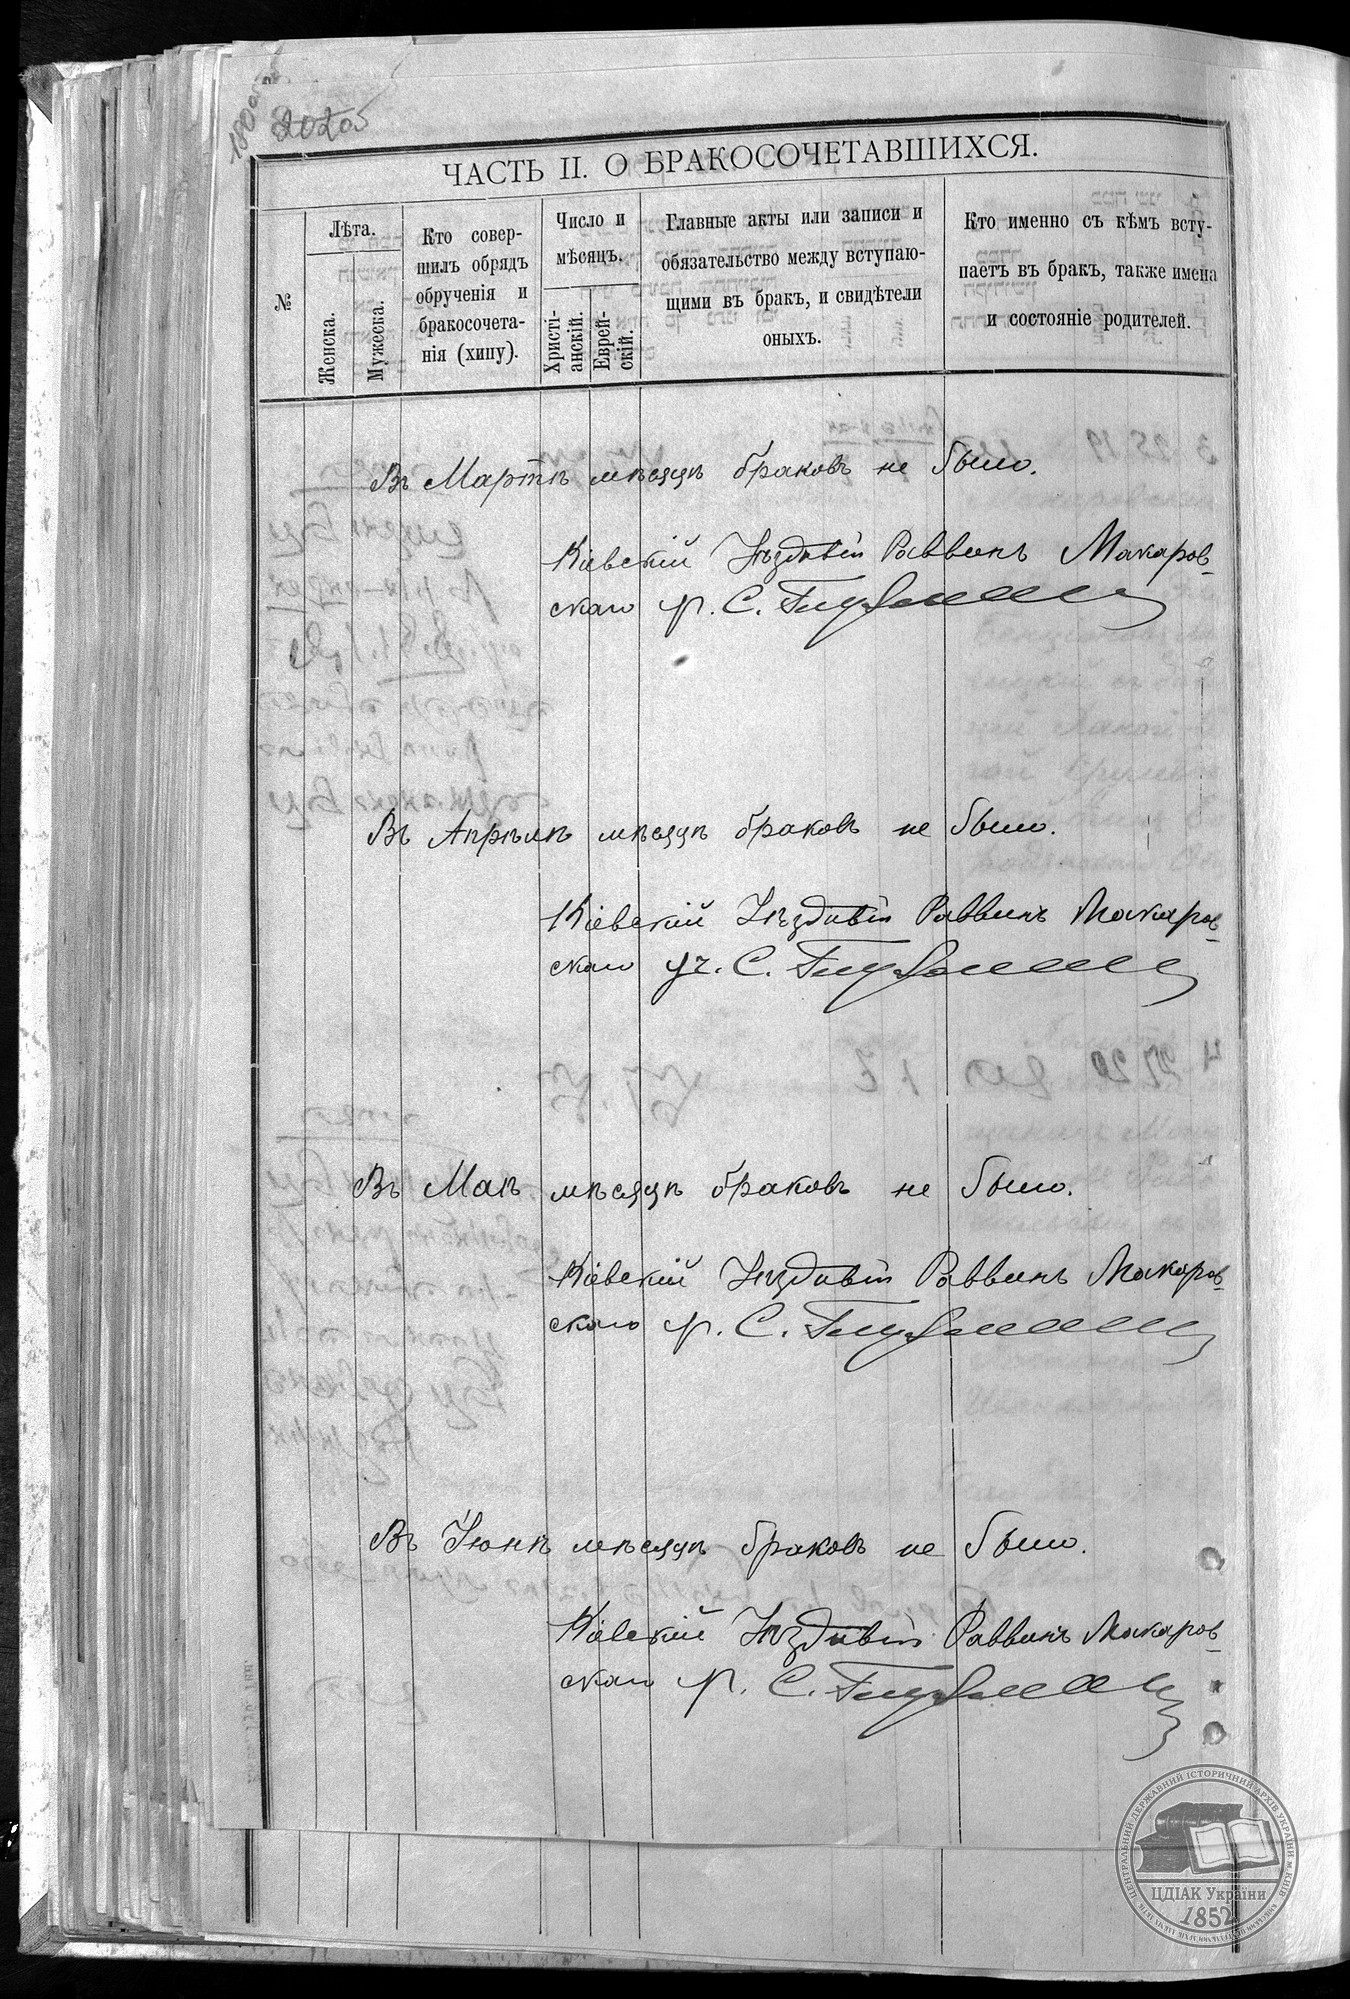 180 об
ЧАСТЬ II. О БРАКОСОЧЕТАВШИХСЯ.
№
Лѣта.
Женска.
Мужеска.
Кто совер-
шилъ обрядъ
обрученія и
бракосочета-
нія (хипу).
Число и
мѣсяцъ.
Христі-
анскій.
Еврей-
скій.
Главные акты или записи и
обязательство между вступаю-
щими въ бракъ, и свидѣтели
оныхъ.
Кто именно съ кѣмъ всту-
паетъ въ бракъ, также имена
и состояніе родителей.
Въ Мартѣ мѣсяцѣ браковъ не было.
Кіевскій Уѣздный Раввинъ Макаров-
скаго р. С.
Въ Апрѣлѣ мѣсяцѣ браковъ не было.
Кіевскій Уѣздный Раввинъ Макаров-
скаго уч. С.
Въ Маѣ мѣсяцѣ браковъ не было.
Кіевскій Уѣздный Раввинъ Макаров-
скаго р. С.
Въ Іюнѣ мѣсяцѣ браковъ не было.
Кіевскій Уѣздный Раввинъ Макаров-
скаго р. С.
ЦЕНТРАЛЬНИЙ ДЕРЖАВНИЙ ІСТОРИЧНИЙ АРХІВ УКРАЇНИ, м. КИЇВ
ЦДІАК України
1852